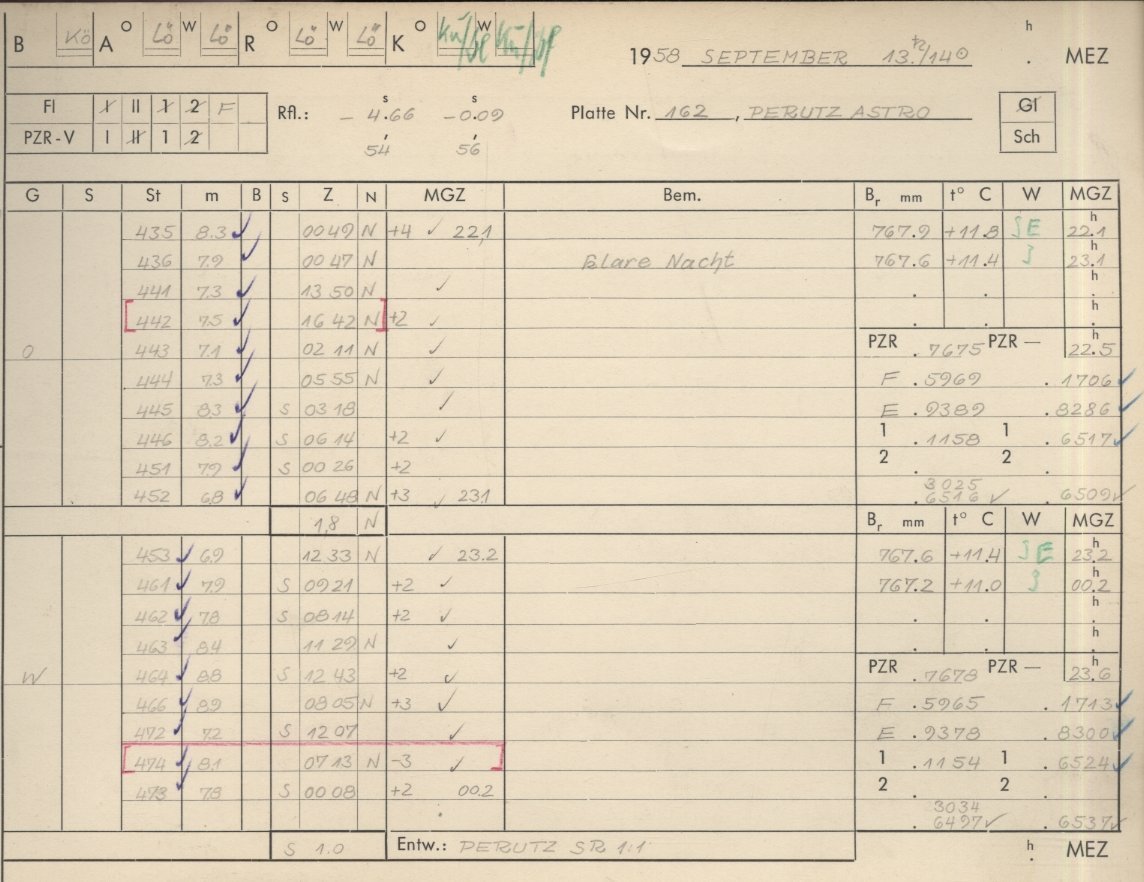 B Kö A O Lö W Lö R O Lö W Lö K O W h
1958 SEPTEMBER 13./14 . MEZ
Fl I II 1 2 F Rfl.: - 4.66 s -0.09 s Platte Nr. 162, PERUTZ ASTRO Gl
PZR-V I II 1 2 54 56 Sch
G S St m B S Z N MGZ Bem. Br mm t° C W MGZ
435 8.3 00 49 N +4 ✓ 22,1 767.9 +11.8 SE 22.1 h
436 7.9 00 47 N Klare Nacht 767.6 +11.4 3 23.1 h
441 7.3 13 50 N ✓ . . . h
442 7.5 16 42 N +2 ✓ . . . h
O 443 7.1 02 11 N ✓ PZR .7675 PZR — 22.5 h
444 7.3 05 55 N ✓ F .5969 .1706
445 8.3 S 03 18 ✓ E .9389 .8286
446 8.2 S 06 14 +2 ✓ 1 .1158 1 .6517
451 7.9 S 00 26 +2 2 . 2 .
3025
452 6.8 06 48 N +3 ✓ 23,1 .6516 ✓ .6509 ✓
1,8 N Br mm t° C W MGZ
453 6.9 12 33 N ✓ 23.2 767.6 +11.4 SE 23.2 h
461 7.9 S 09 21 +2 ✓ 767.2 +11.0 3 00.2 h
462 7.8 S 08 14 +2 ✓ . . . h
463 8.4 11 29 N ✓ . . . h
W 464 8.8 S 12 43 +2 ✓ PZR .7678 PZR — 23.6 h
466 8.9 08 05 N +3 ✓ F .5965 .1713
472 7.2 S 12 07 ✓ E .9378 .8300
474 8.1 07 13 N -3 ✓ 1 .1154 1 .6524
473 7.8 S 00 08 +2 00.2 2 . 2 .
3034
.6497 ✓ .6537 ✓
S 1.0 Entw.: PERUTZ SR 1:1 h . MEZ